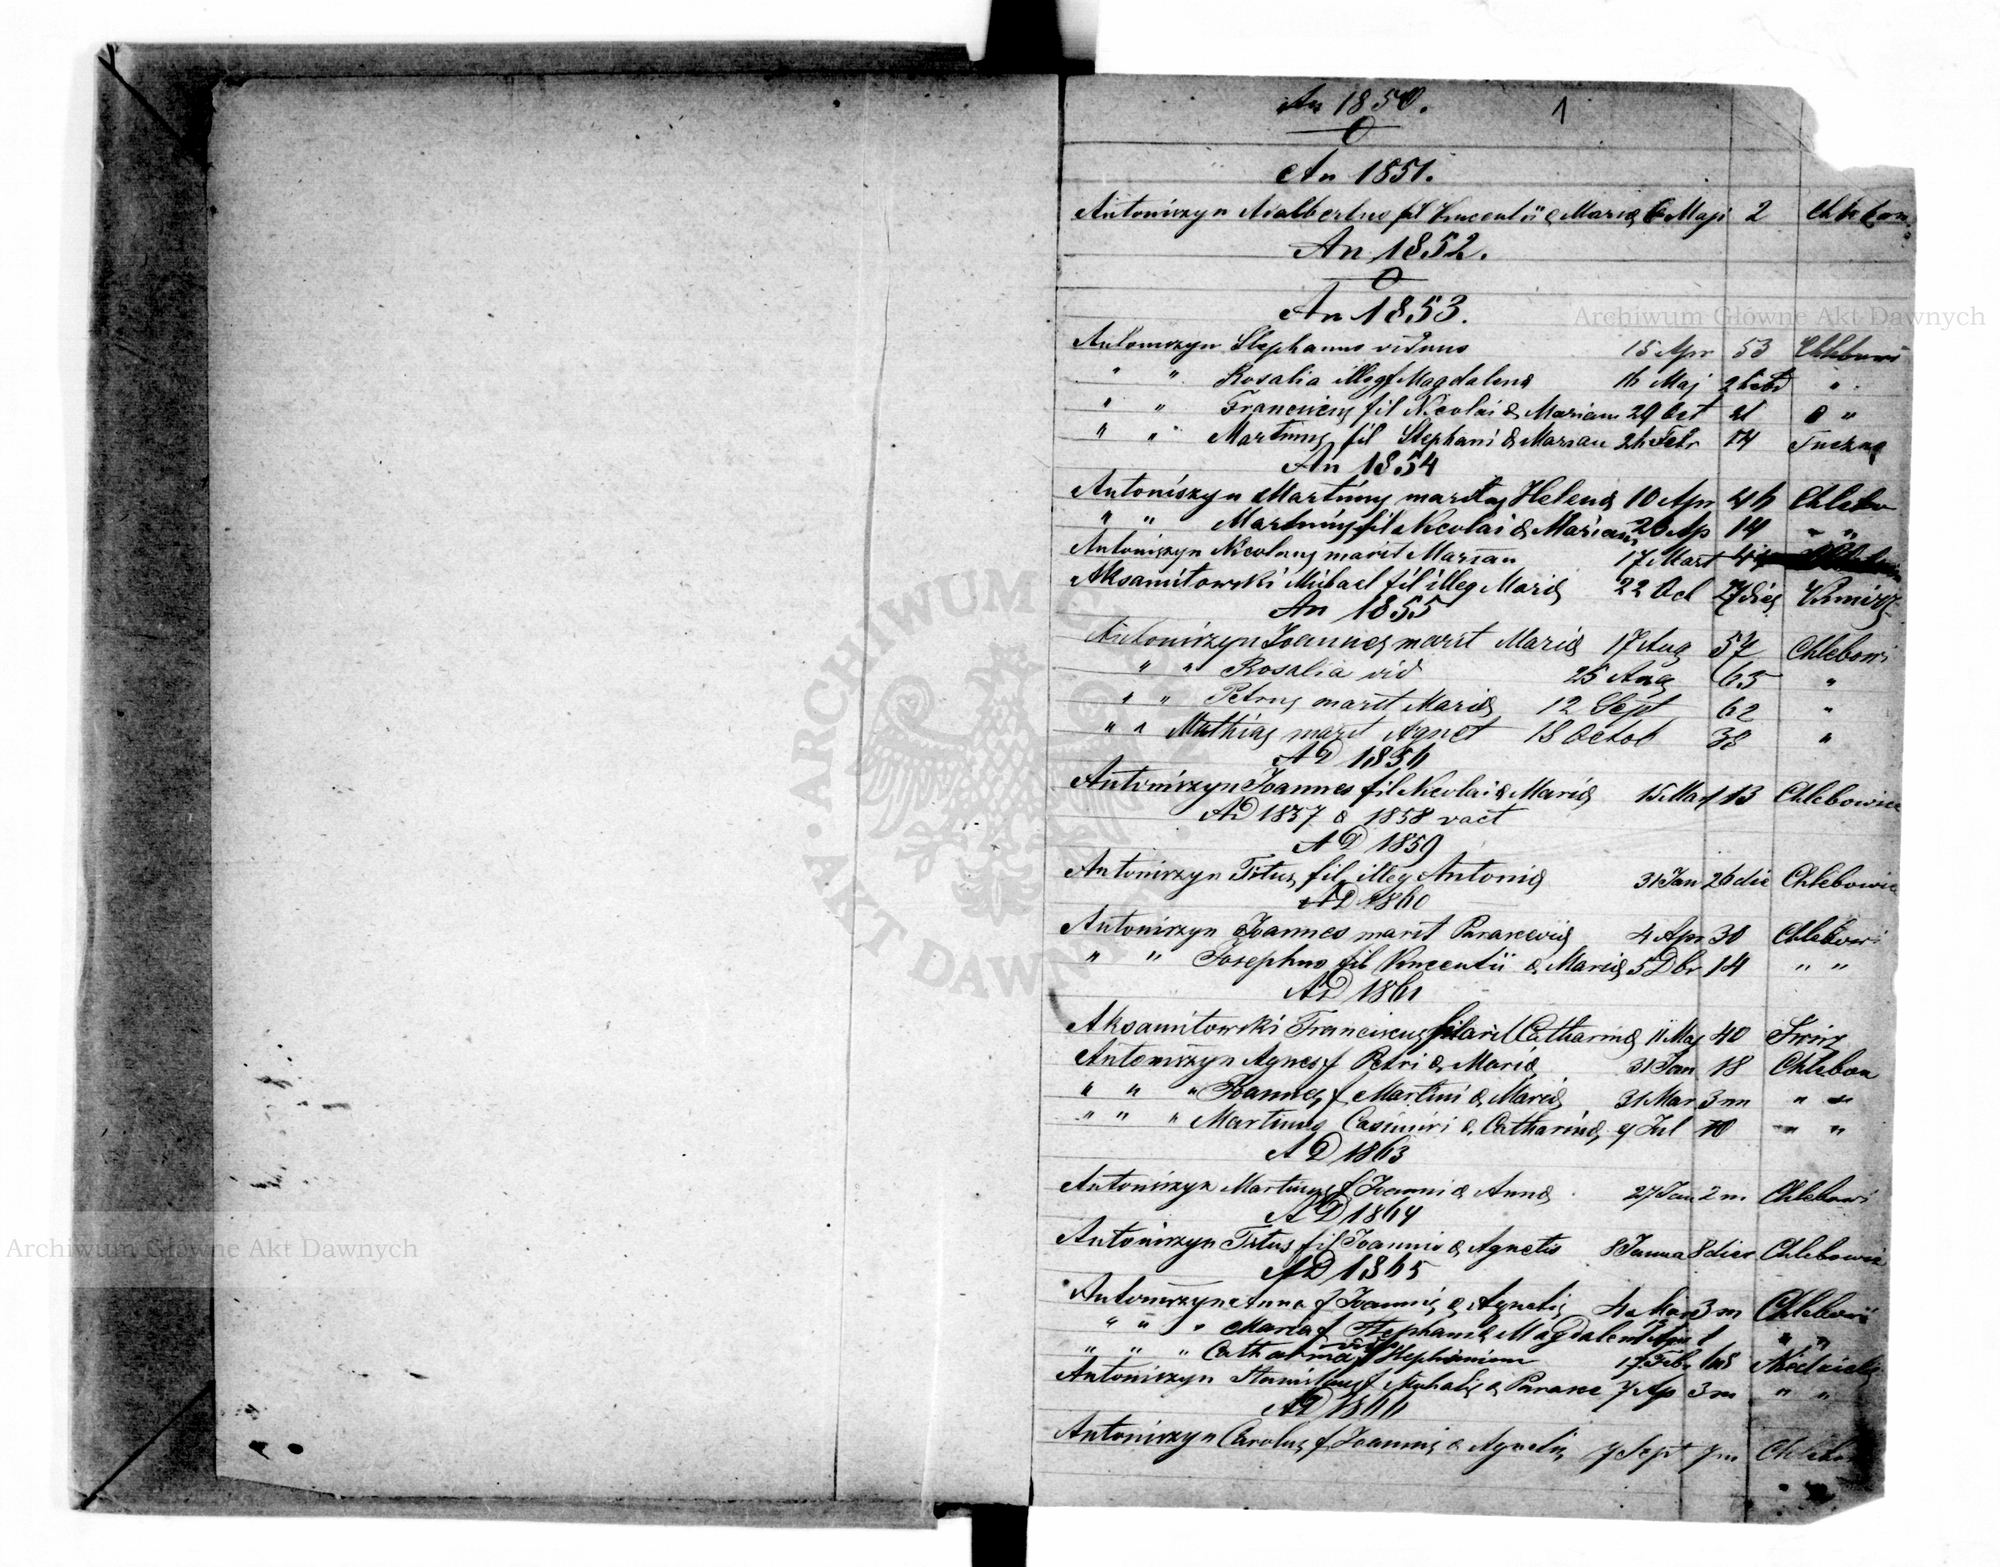 An 1850.
1
0
An 1851.
Antoniszyn Adalbertus fil Vincentii & Mariæ 6 Maji 2
An 1852.
0
An 1853.
Antoniszyn Stephanus viduus 15 Apr 53 Chlebowi
" " Rosalia illeg f Magdalenæ 16 Maj "
" " Franciscus fil Nicolai & Marian 29 Oct 21 "
" " Martinus fil Stephani & Marian 26 Febr 14
An 1854
Antoniszyn Martinus maritus Helenæ 10 Apr 46 Chlebo
" " Martinus fil Nicolai & Marian 26 Ap 14 " "
Antoniszyn Nicolaus marit Marian 17 Mart
Aksamitowski Michael fil illeg Mariæ 22 Oct 27 dies
An 1855
Antoniszyn Joannes marit Mariæ 17 Aug 57 Chlebowi
" " Rosalia vid 25 Aug 65 "
" " Petrus marit Mariæ 12 Sept 62 "
" " Mathias marit Agnet 18 Octob 38 "
AD 1856
Antoniszyn Joannes fil Nicolai & Mariæ 15 Mar 13 Chlebowice
AD 1857 & 1858 vact
AD 1859
Antoniszyn Titus fil illeg Antoniæ 31 Jan 26 die Chlebowic
AD 1860
Antoniszyn Joannes marit Parasceviæ 4 Apr 30 Chlebowi
" " Josephus fil Vincentii & Mariæ 5 Dbr 14 " "
AD 1861
Aksamitowski Franciscus marit Catharinæ 11 Maj 40 Swirz
Antoniszyn Agnes f Petri & Mariæ 31 Jan 18 Chlebow
" " " Joannes f Martini & Mariæ 31 Mar 3 m " "
" " " Martinus Casimiri & Catharinæ 9 Jul 10 " "
AD 1863
Antoniszyn Martinus f Joanni & Annæ 27 Jan 2 m Chlebowi
AD 1864
Antoniszyn Titus fil Joannis & Agnetis 8 Janua 8 dier Chlebowic
AD 1865
Antoniszyn Anna f Joannis & Agnetis 3 m Chlebowi
" " " Maria f Stephani & Magdalen " "
" " " Catharina Stephanium 17 Feb
Antoniszyn Stanislaus f Michalis & Parasc 7 Ap 3 m " "
AD 1866
Antoniszyn Carolus f Joannis & Agnetis 7 Sept 7 m Chlebow
Archiwum Główne Akt Dawnych
Archiwum Główne Akt Dawnych